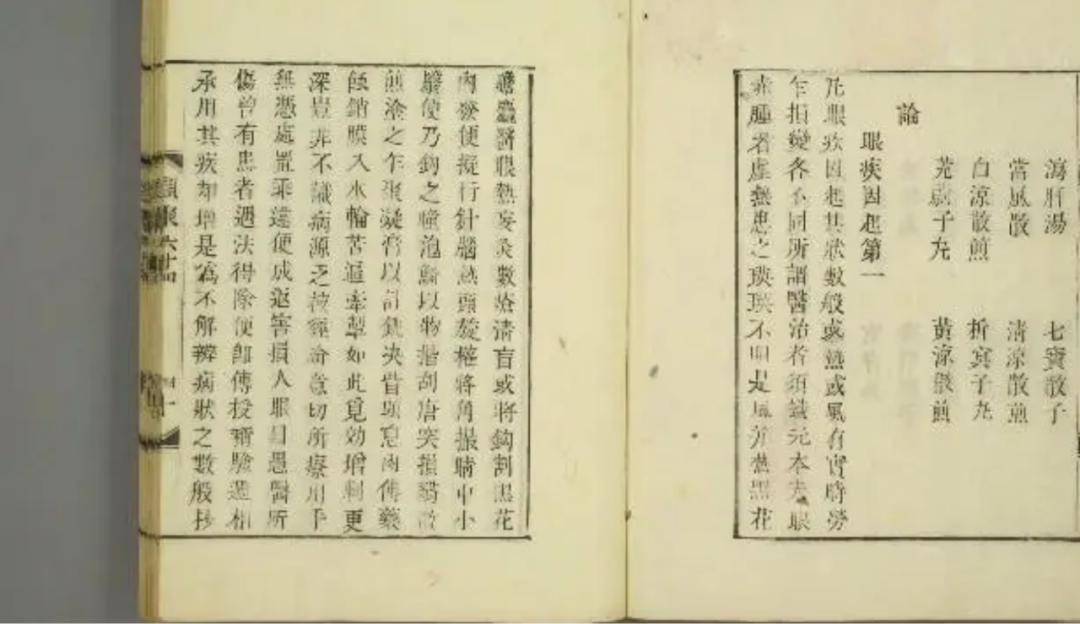 瀉肝湯 七寶散子
當風散 清涼散煎
白涼散煎 析蓂子丸
茺蔚子丸 黃涼散煎
論
眼疾因起第一
凡眼疾因起其狀數般或熱或風有實時勞
乍損變各不同所謂醫治者須識元本夫眼
赤腫者虛熱患之瑛瑛不明是風并熱黑花
麤醫眼熱妄灸數瘡清盲或將鈎割黑花
內發便擬行針腦熱頭旋權將角撮睛中小
翳便乃鈎之瞳泡以物揩刮唐突損翳
煎塗之乍棗凝膏以決眥頭息肉傅藥
銷膜入水輪苦逼牽如此覓効增剩更
深豈非不識病源之輕意切所療用手
無憑處置乖違便成返害損人眼目愚醫所
傷曾有患者遇法得除便即傳授驗遞相
承用其疾却增是為不解辨病狀之數般抄